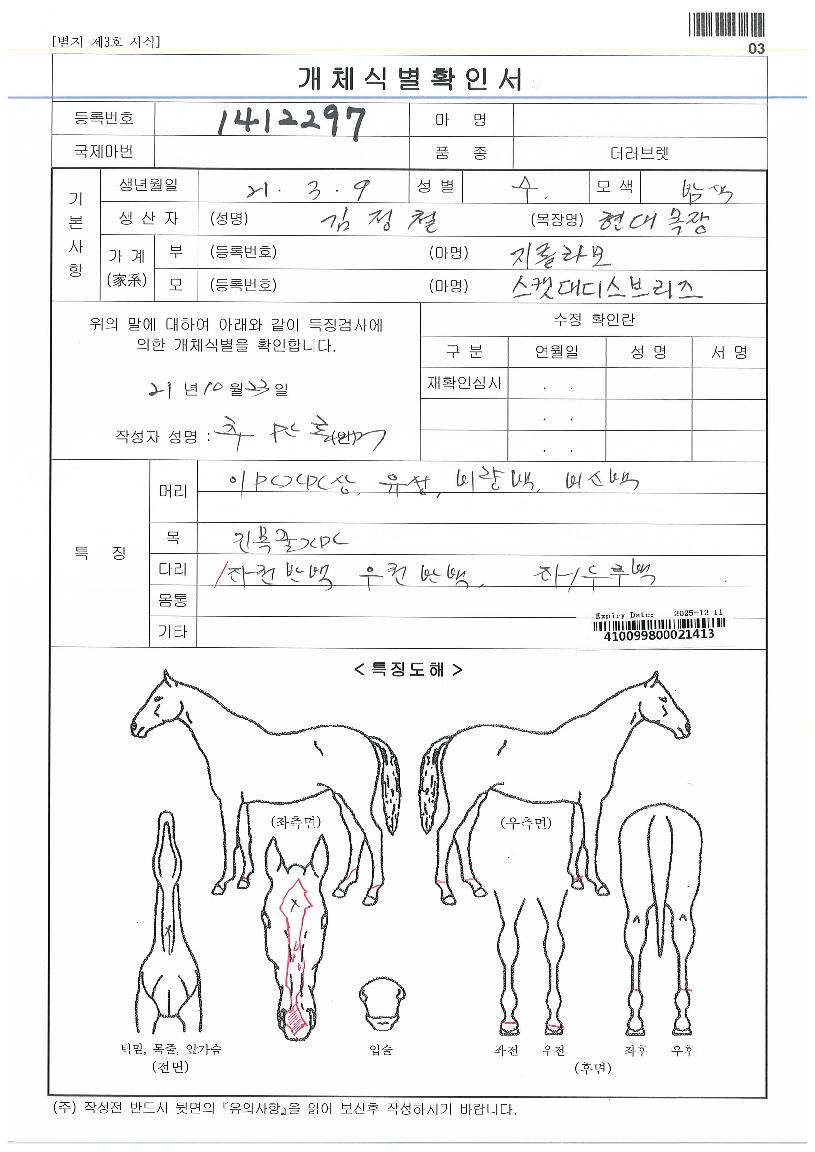 [별지 제3호 서식]
03
개체식별확인서
등록번호 1412297 마 명
국제마번 품 종 더러브렛
기본사항
생년월일 21. 3. 9 성 별 수. 모 색 밤색
생 산 자 (성명) 김정철 (목장명) 현대목장
가 계 (家系) 부 (등록번호) (마명) 지롤라모
모 (등록번호) (마명) 스캣대디스브리즈
위의 말에 대하여 아래와 같이 특징검사에
의한 개체식별을 확인합니다.
21 년 10 월 23 일
작성자 성명 : (인)
수정 확인란
구 분 연월일 성 명 서 명
재확인심사 . .
. .
. .
특 징
머리 유성, 비량백, 비신백
목
다리 좌전반백 우전반백, 좌/우후백
몸통
기타
Expiry Date: 2025-12-11
410099800021413
< 특징도해 >
(좌측면) (우측면)
턱밑, 목줄, 앞가슴 입술 좌전 우전 좌후 우후
(전면) (후면)
(주) 작성전 반드시 뒷면의 『유의사항』을 읽어 보신후 작성하시기 바랍니다.